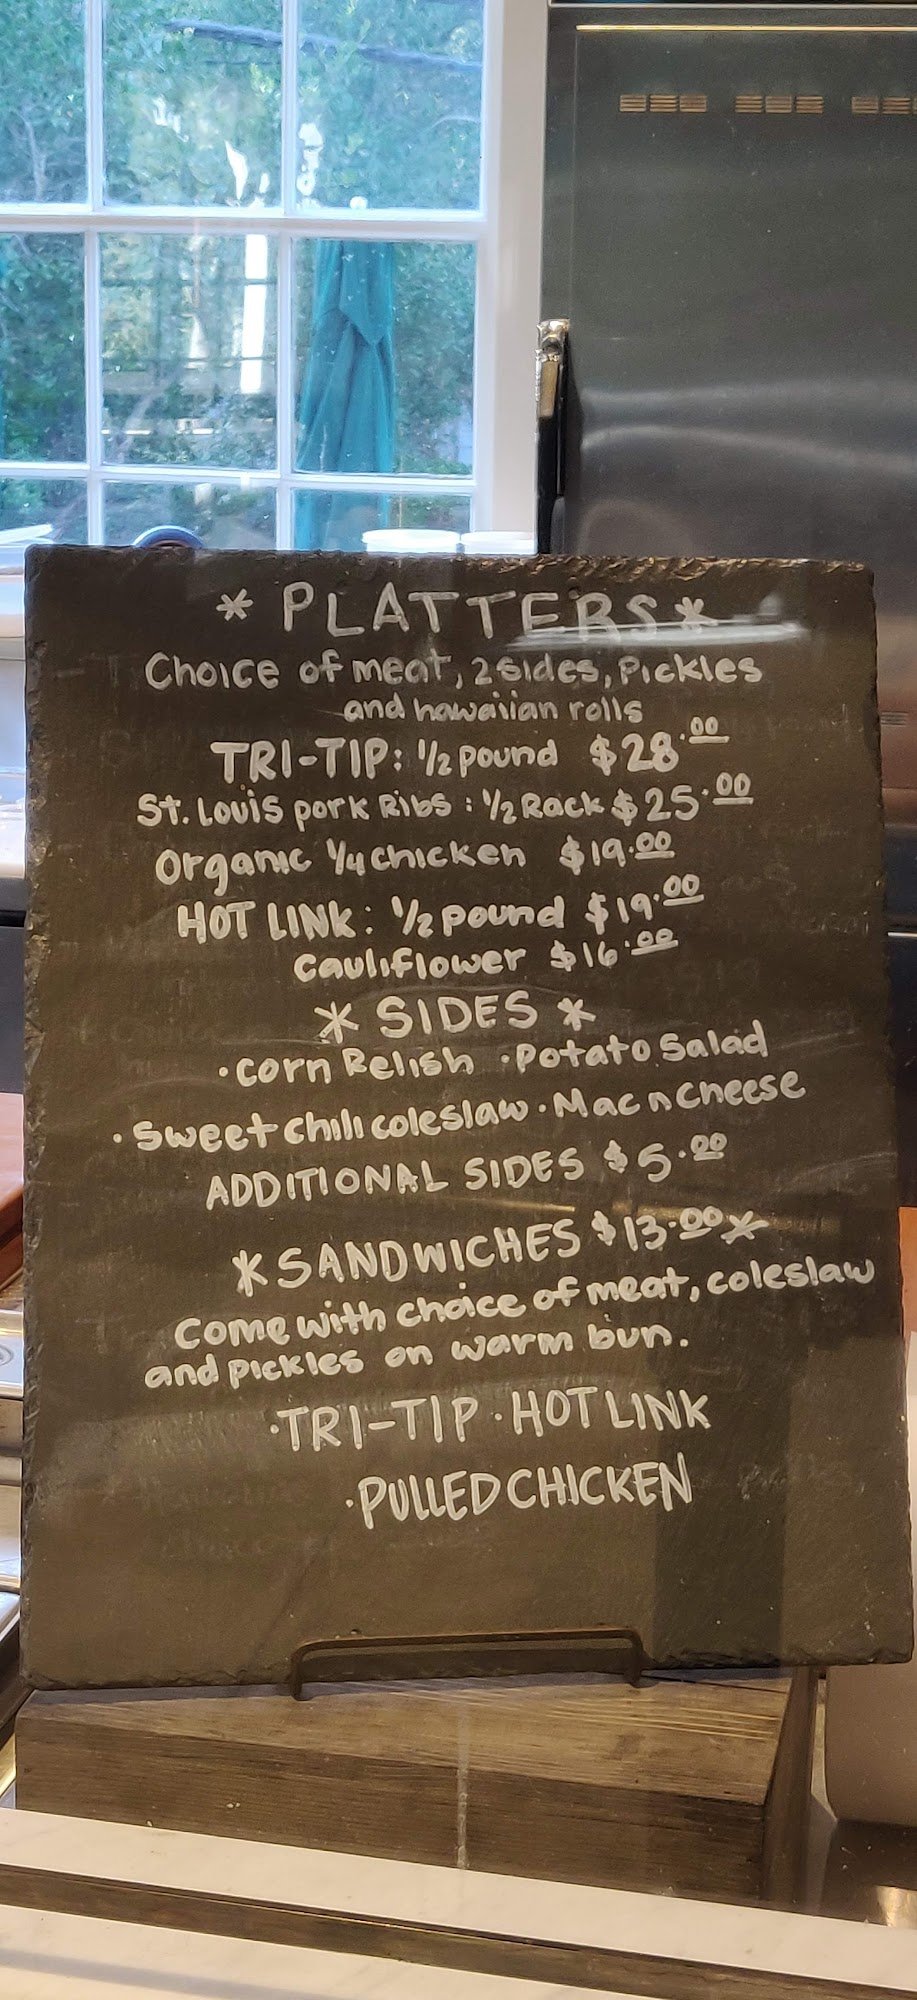 * PLATTERS *
Choice of meat, 2 sides, Pickles
and hawaiian rolls
TRI-TIP: 1/2 pound $28.00
St. Louis pork Ribs: 1/2 Rack $25.00
Organic 1/4 chicken $19.00
HOT LINK: 1/2 pound $19.00
cauliflower $16.00
* SIDES *
· corn Relish · Potato Salad
· Sweet chili coleslaw · Mac n Cheese
ADDITIONAL SIDES $5.00
* SANDWICHES $13.00 *
Come with choice of meat, coleslaw
and pickles on warm bun.
· TRI-TIP · HOT LINK
· PULLED CHICKEN